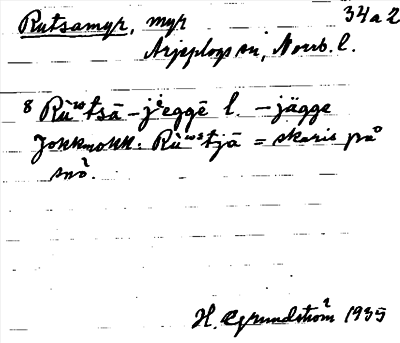 Rutsamyr, myr 34a2
Arjeplogs sn, Norrb. l.
8 Rùʷtsā-jᵉeggē l. -jägge
Jokkmokk: Rùʷˢtjā = skaris på
snö.
H. Grundström 1935